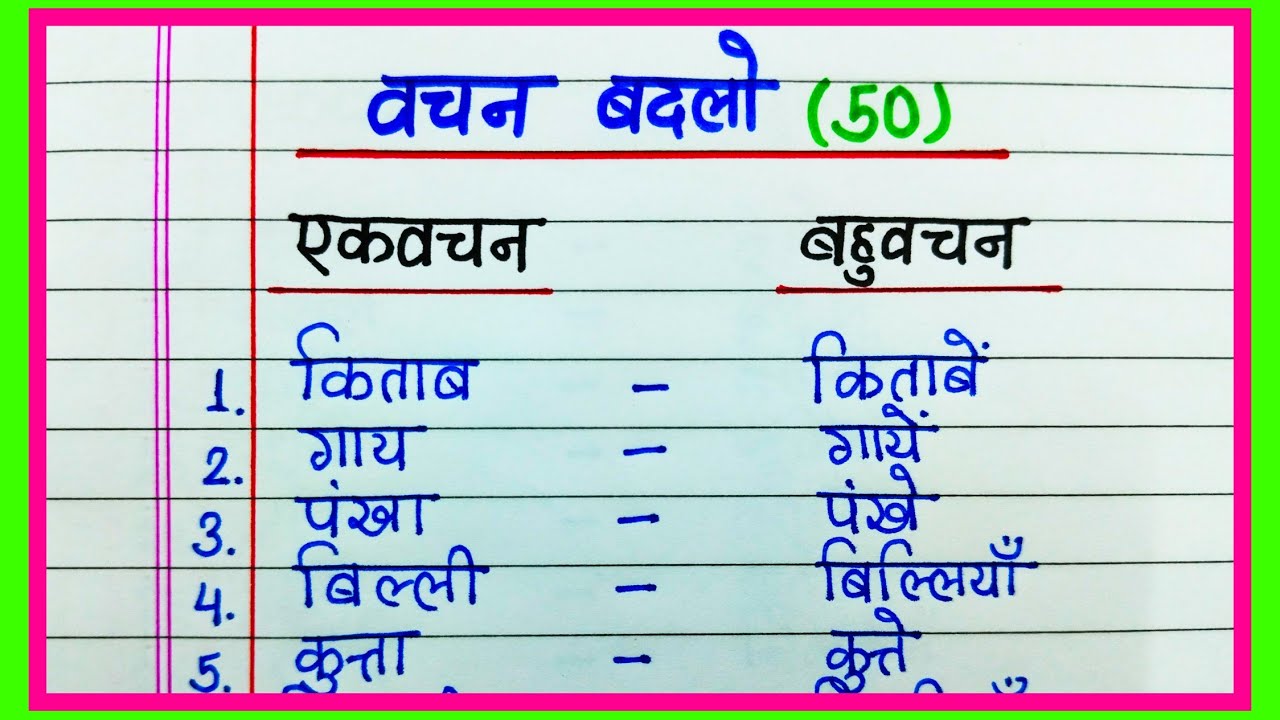 वचन बदलो (50)
एकवचन बहुवचन
1. किताब - किताबें
2. गाय - गायें
3. पंखा - पंखे
4. बिल्ली - बिल्लियाँ
5. कुत्ता - कुत्ते